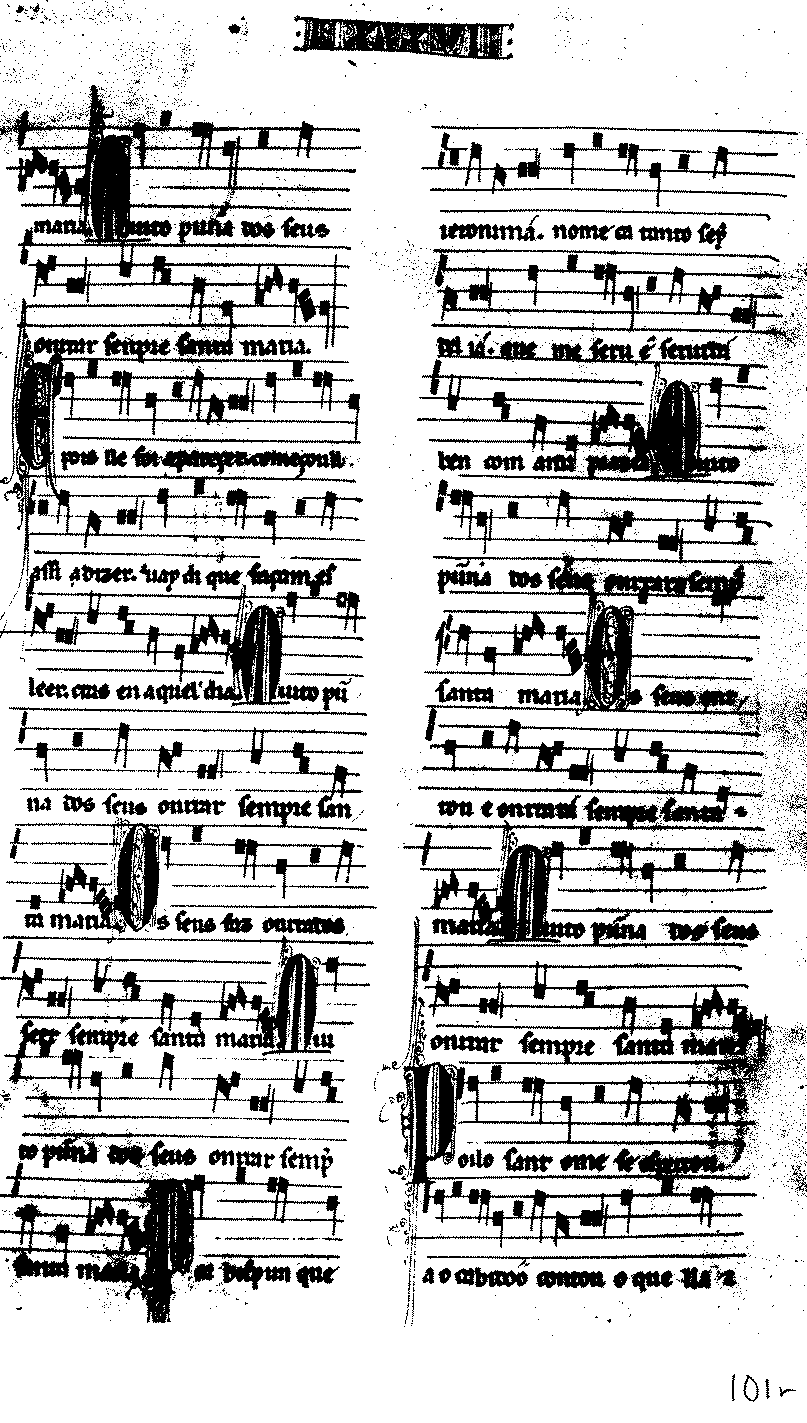 maria. Muito punna dos seus
onrrar senpre santa maria.
pois lle foi apareçer. começoull
assi a dizer. vay di que façam es
leer. cras en aquel dia. Muito pun
na dos seus onrrar sempre san
ta maria. Os seus faz onrrados
seer sempre santa maria. Mui
to punna dos seus onrrar semp
santa maria. dolpun que
ieronimá. nome ea tanto sey
del iá. que me seru e seruirá
ben com ama Muito
punna dos seus onrrar semp
santa maria. Os seus onr
rou e onrrará sempre santa
maria. Muito punna dos seus
onrrar sempre santa mari
Poilo sant ome se espertou.
a o cabidoo contou o que ll a
101r